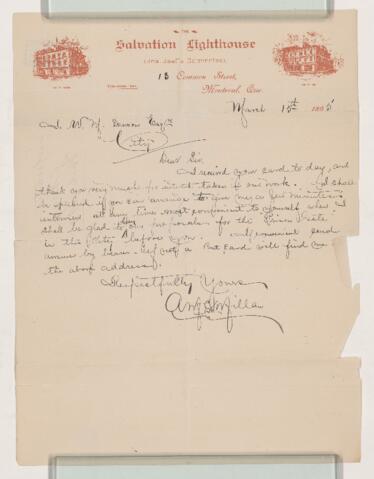 THE
Salvation Lighthouse
13 Common Street,
Montreal, Que.
March 15th 1895
W. M. Esqre
City
Dear Sir
I received your card to day, and
thank you very much for interest taken in our work. I shall
be pleased if you can arrange to give me a few minutes
interview at any time most convenient to yourself when I
shall be glad to lay our for the Prison Gate
in this City before you. send
answer by bearer. If not a Post card will find me
the above address.
Respectfully Yours